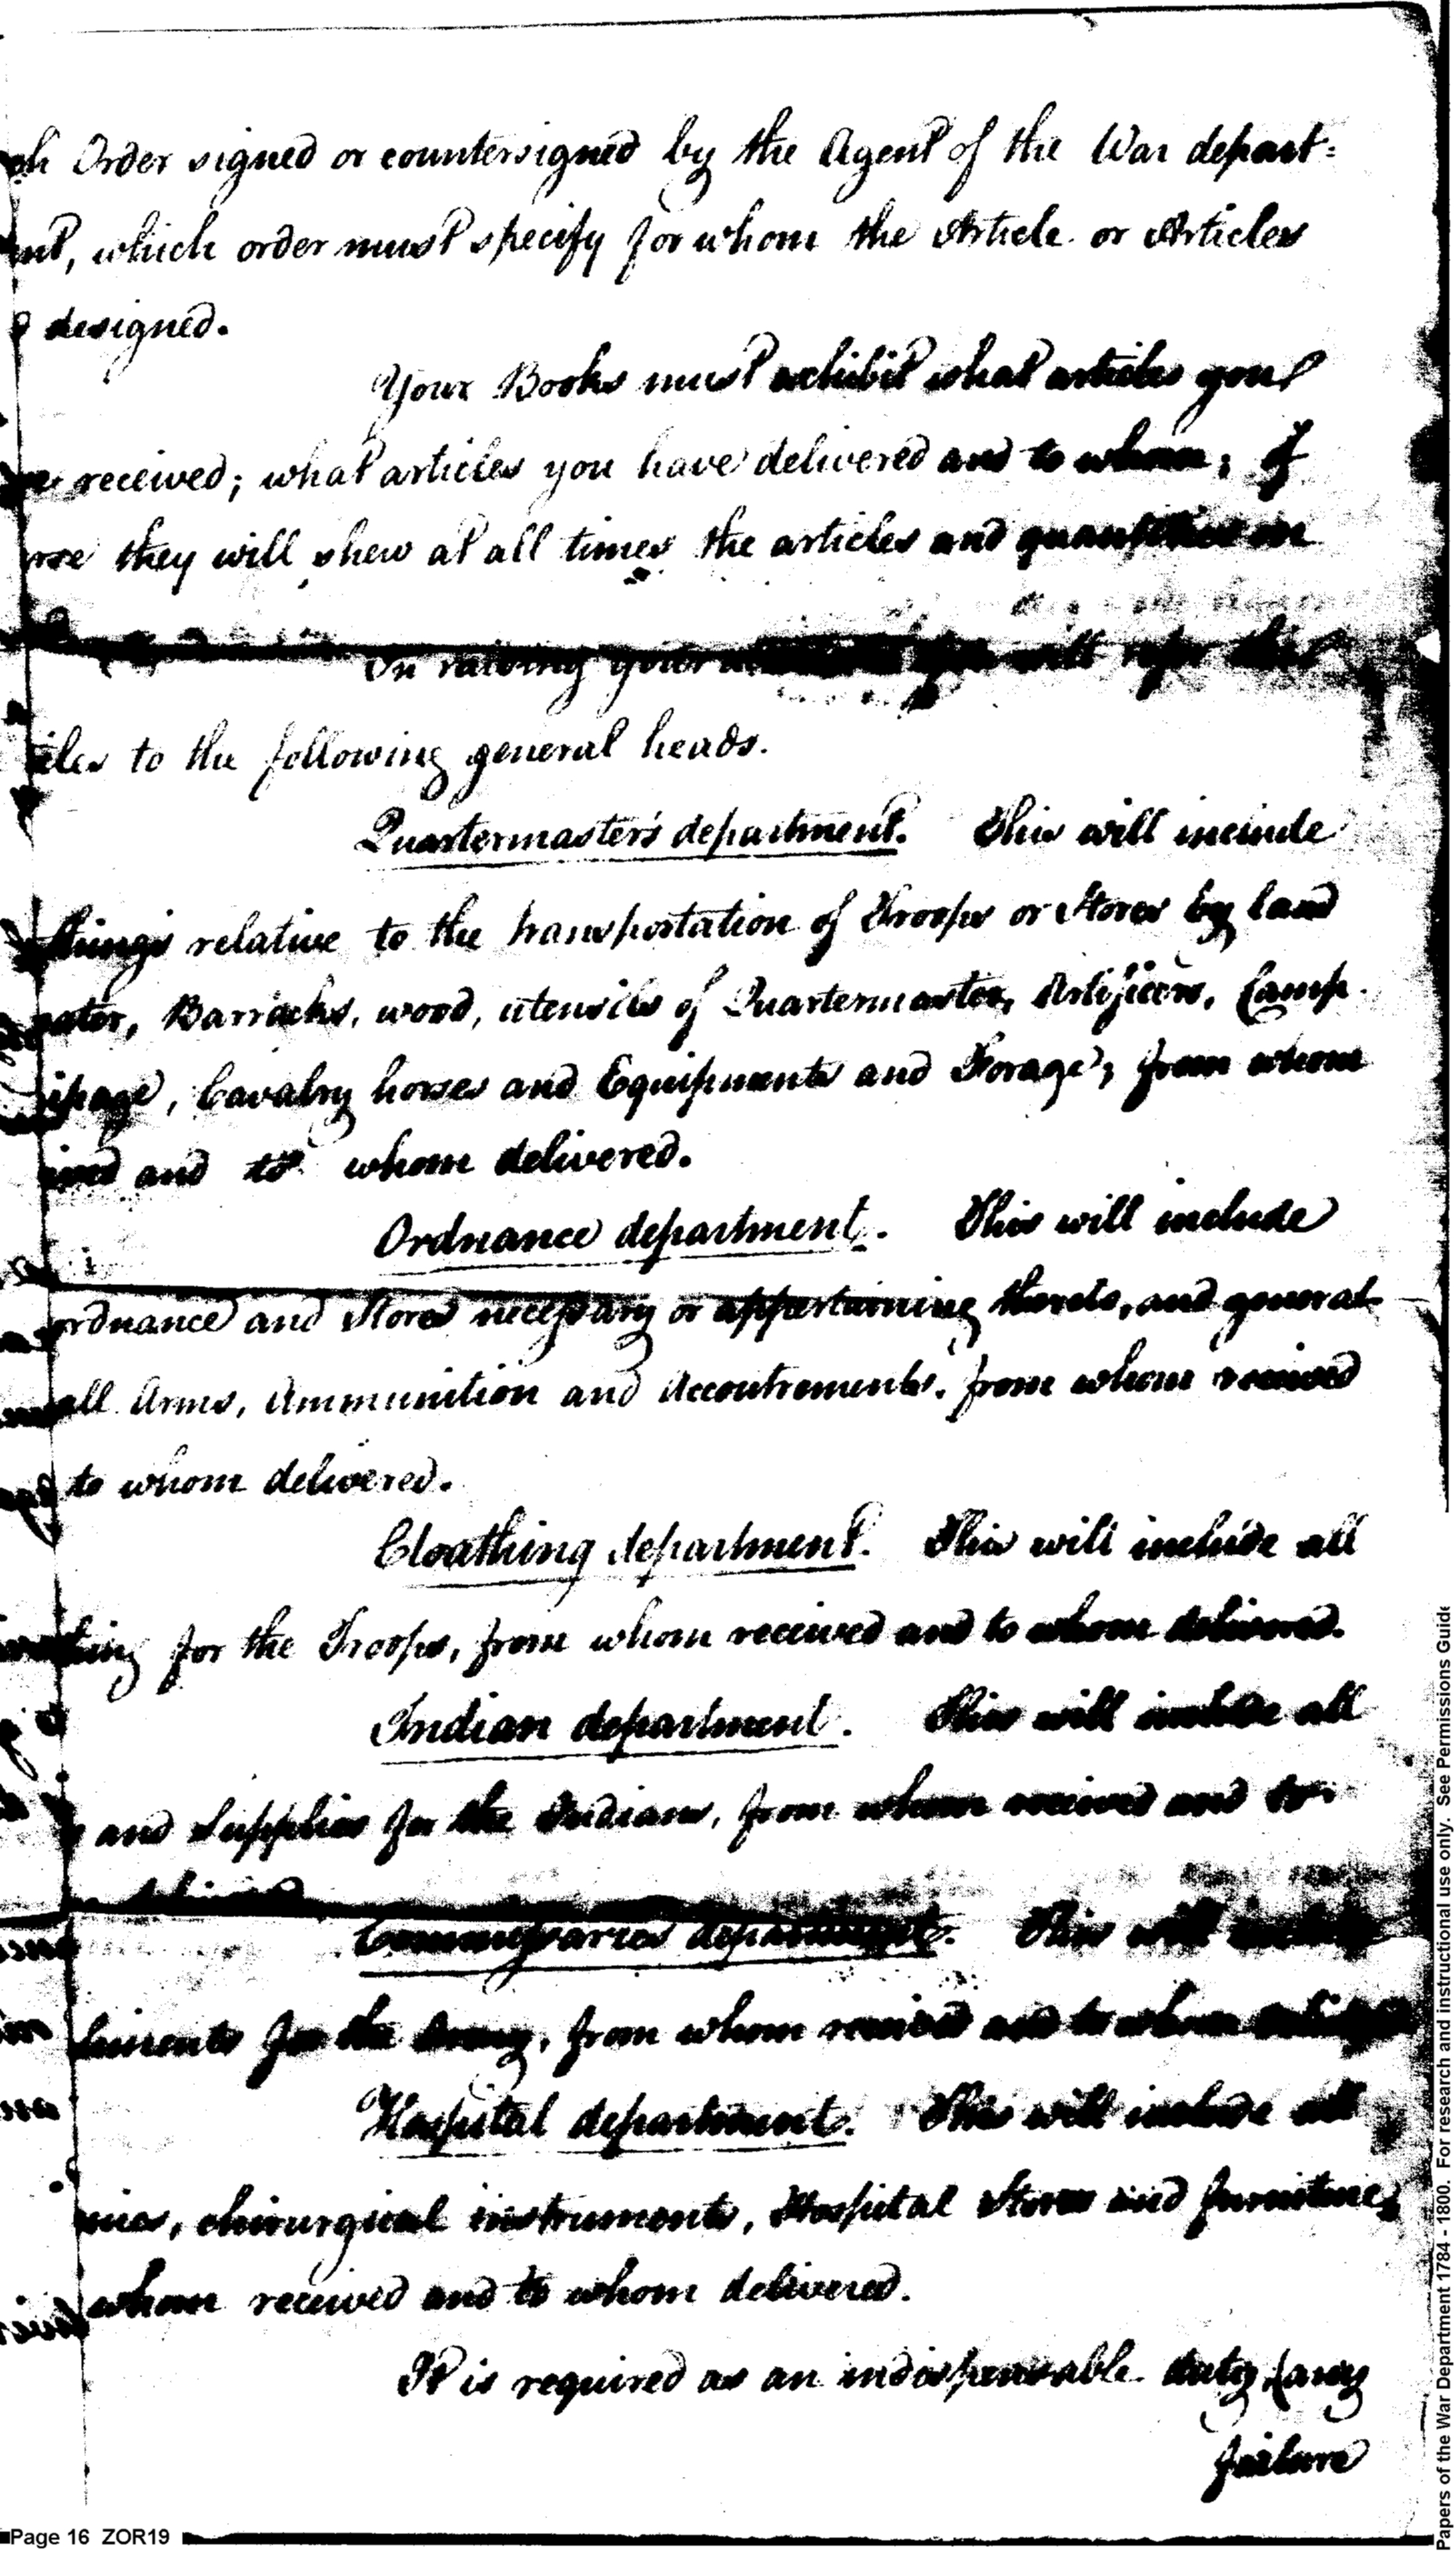 Order signed or countersigned by the Agent of the War depart=
, which order must specify for whom the Article or Articles
designed.
Your Books must exhibit what articles you
received; what articles you have delivered and to whom; of
they will shew at all times the articles and quantities on
In raising your will refer this
to the following general heads.
Quartermaster's department. This will include
things relative to the transportation of Troops or Stores by land
water, Barracks, wood, utensils of Quartermaster, Artificers, Camp
ipage, Cavalry horses and Equipments and Forage; from whom
and to whom delivered.
Ordnance department. This will include
ordnance and Stores necessary or appertaining thereto, and general
all Arms, Ammunition and Accoutrements, from whom received
to whom delivered.
Cloathing department. This will include all
for the Troops, from whom received and to whom delivered.
Indian department. This will include all
and Supplies for the Indians, from whom received and to
Commissaries department. This will include
for the Army, from whom received and to whom
Hospital department. This will include all
, chirurgical instruments, Hospital Stores and furniture,
whom received and to whom delivered.
It is required as an indispensable duty, (any
failure
Page 16 ZOR19
Papers of the War Department 1784 - 1800. For research and instructional use only. See Permissions Guide